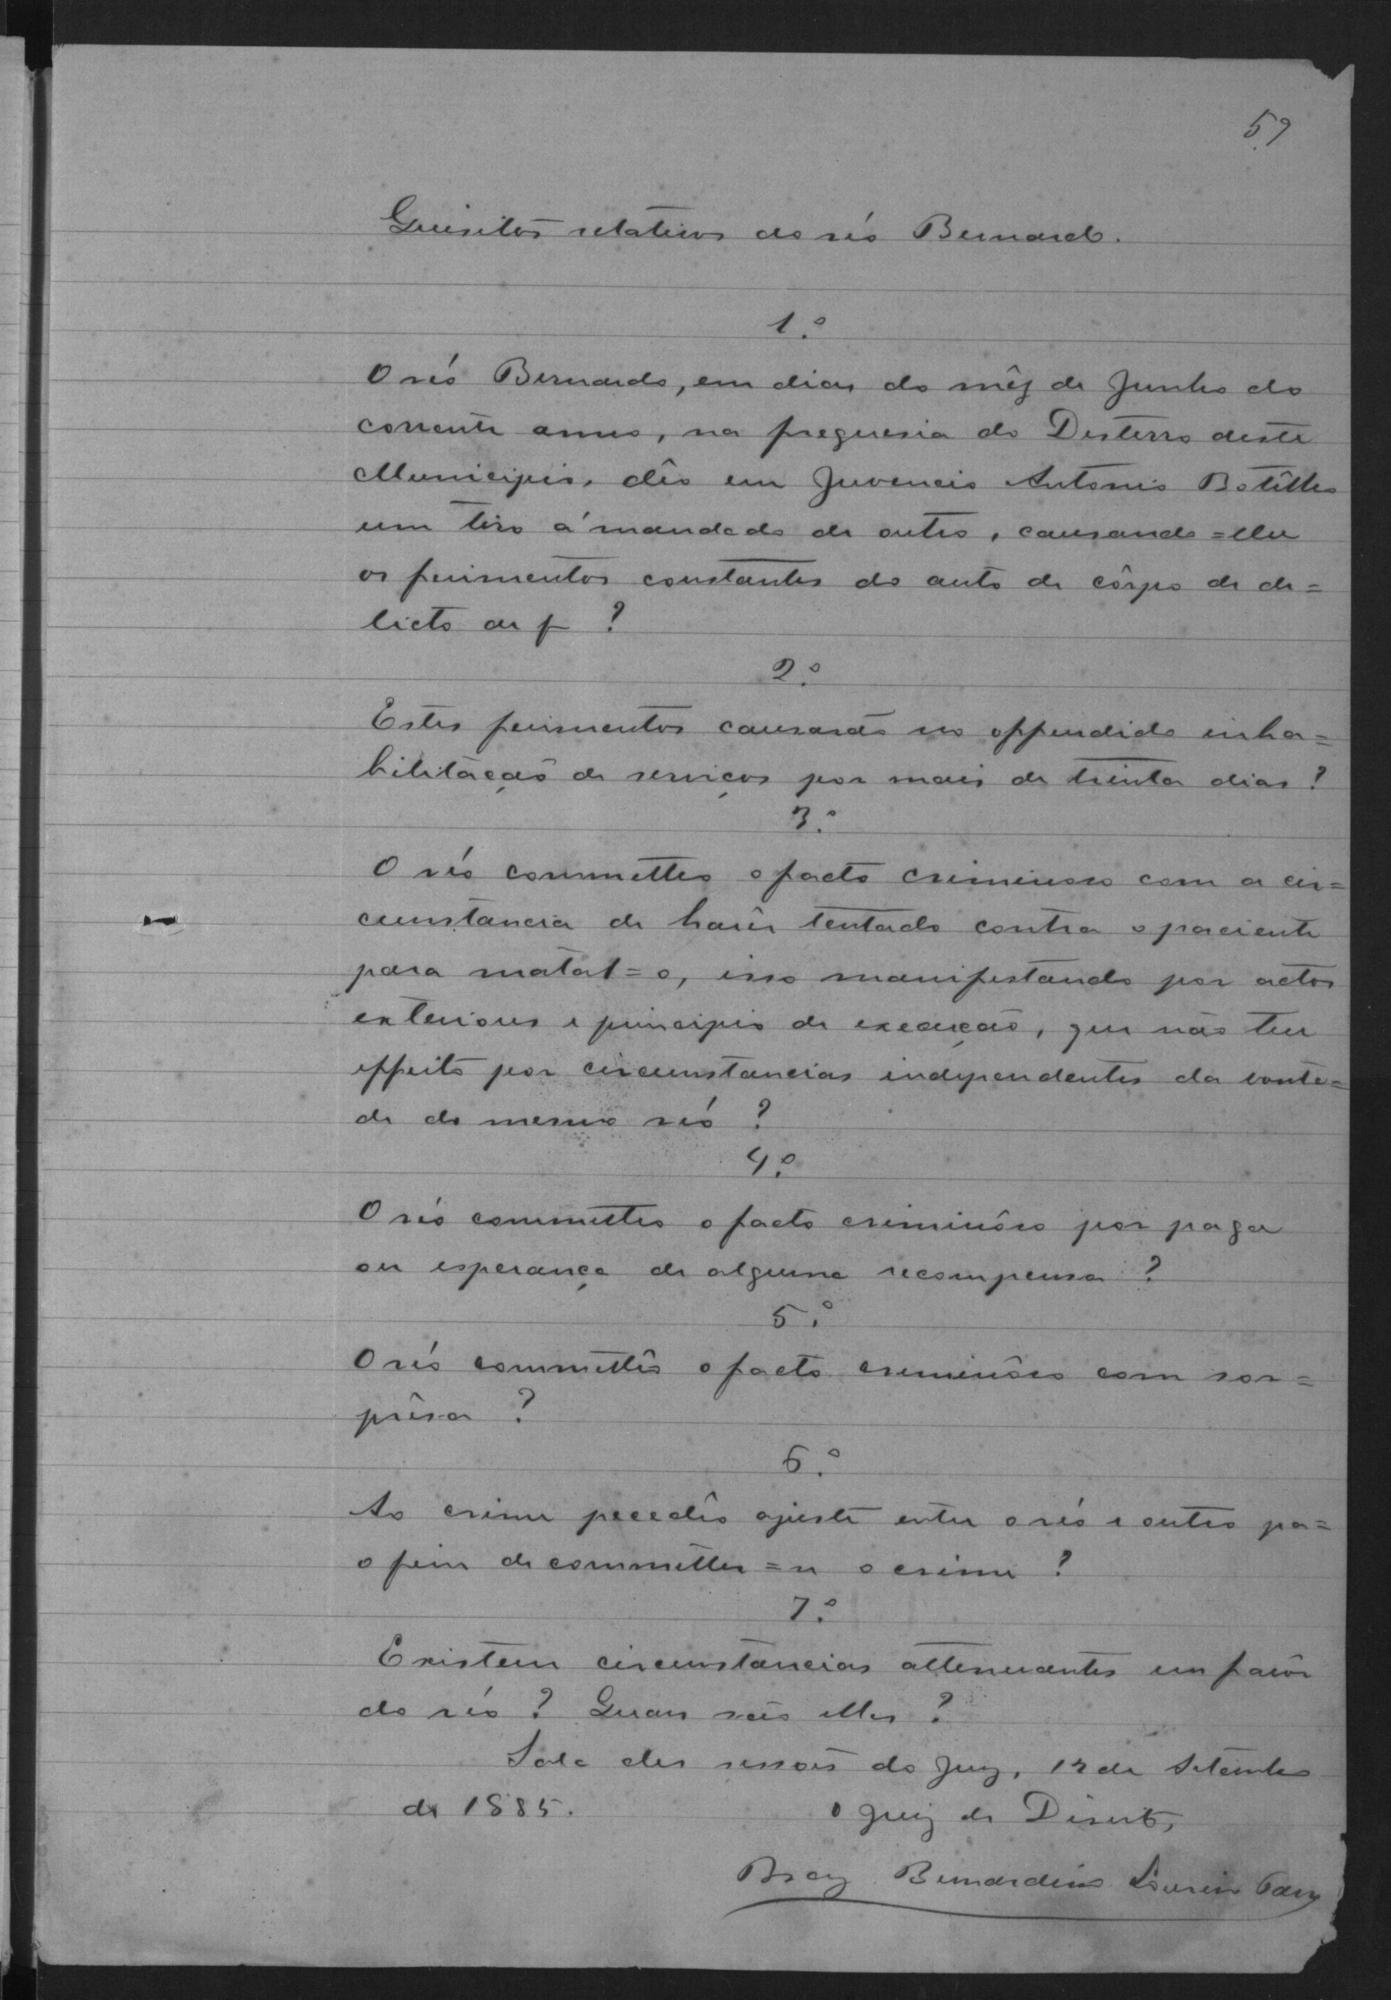 59
Quesitos relativos ao réo Bernardo.
1.º
O réo Bernardo, em dias do mêz de Junho do
corrente anno, na freguesia do Desterro deste
Municipio, dêo em Juvencio Antonio Botêlho
um tiro á mandado de outro, causando=lhe
os ferimentos constantes do auto de côrpo de de=
licto de f ?
2.º
Estes ferimentos causarão no offendido inha=
bilitação de serviços por mais de trinta dias ?
3.º
O réo commetteo o facto criminoso com a cir=
cunstancia de havêr tentado contra o paciente
para matal=o, isso manifestando por actos
exteriores e principio de execução, que não teve
effeito por circunstancias independentes da vonta=
de do mesmo réo ?
4.º
O réo commetteo o facto criminôso por paga
ou esperança de alguma recompensa ?
5.º
O réo commettêo o facto criminôso com sor=
prêsa ?
6.º
Ao crime pecedêo ajuste entre o réo e outro pa=
o fim de commetter=se o crime ?
7.º
Existem circunstancias attenuantes em favôr
do réo ? Quaes são ellas ?
Sala das sessões do Jury, 12 de Setembro
de 1885.
O Juiz de Direito,
Braz Bernardino Loureiro